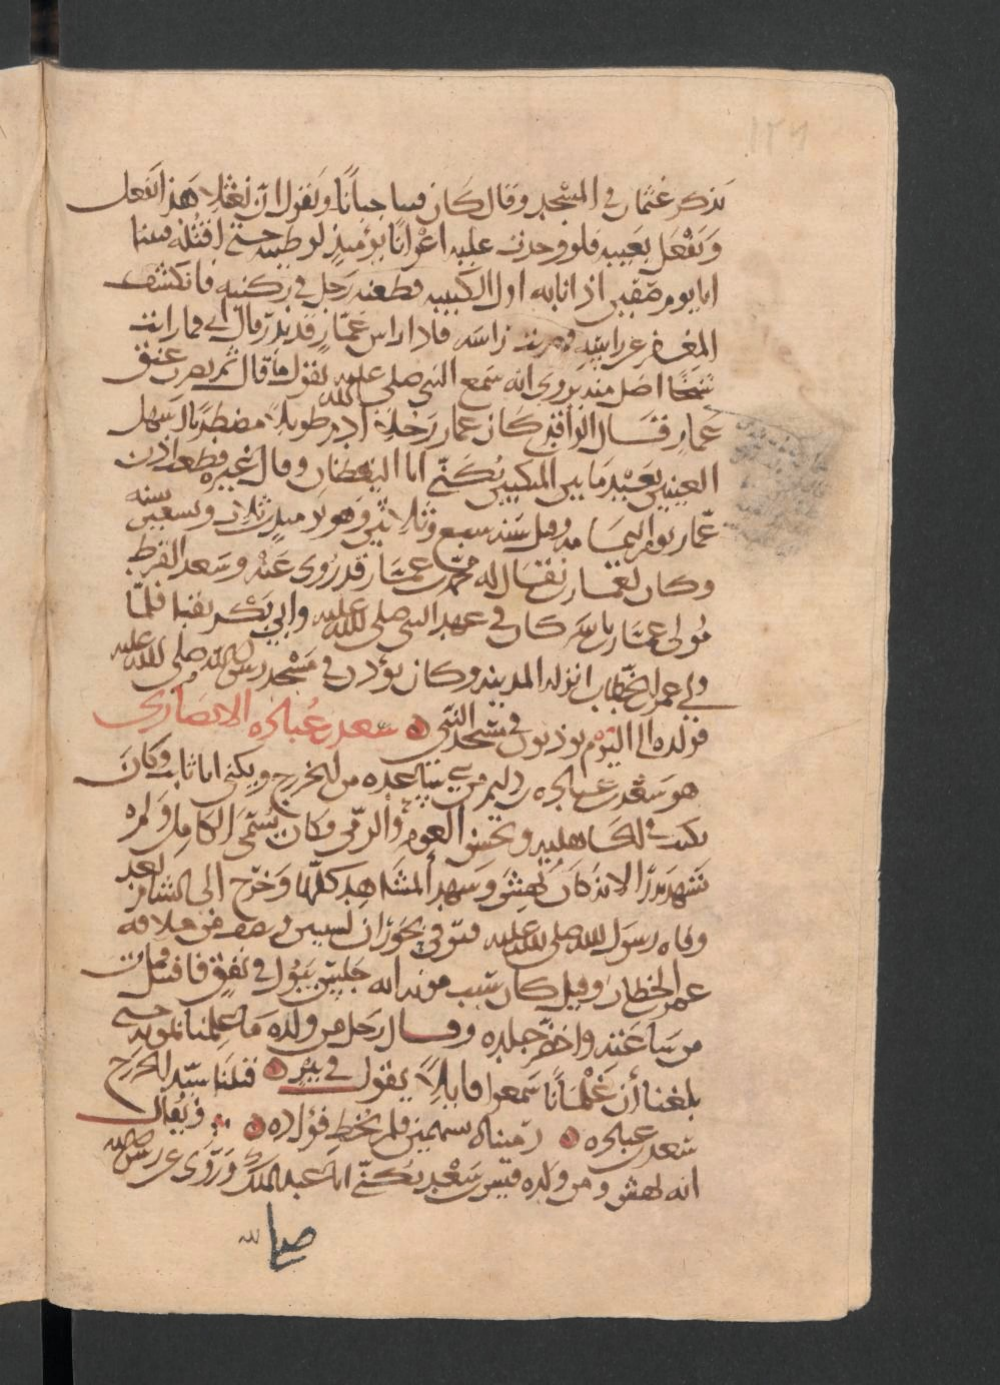 يذكر عثمان في المسجد وقال كان فينا حنانا ويقول ان نعثلا هذا يفعل
ويفعل بعيبه فلو وجدت عليه اعوانا يومئذ لوطئته حتى اقتله فبينا
انا يوم صفين اذ انا به اول الكتيبه فطعنه رجل في ركبته فانكشف
المغفر عن راسه فضربت راسه فاذا راس عمار قد ندر قال فما رايت
شيخا اضل منه يروي انه سمع النبي صلى الله عليه يقول ما قال ثم يضرب عنق
عمار وقال الواقدي كان عمار رجلا ادم طويلا مضطربا اشهل
العينين بعيد ما بين المنكبين يكنى ابا اليقظان وقال غيره قطعت اذن
عمار يوم اليمامه وقيل سنه سبع وثلاثين وهو يوميذ ابن ثلاث وتسعين سنه
وكان لعمار ابن يقال له محمد بن عمار قد روى عنه وسعد القرظ
مولى عمار بن ياسر كان في عهد النبي صلى الله عليه وابي بكر بقبا فلما
ولي عمر بن الخطاب انزله المدينه وكان يوذن في مسجد رسول الله صلى الله عليه
فولده الى اليوم يوذنون في مسجد النبي سعد بن عباده الانصاري
هو سعد بن عباده بن دليم من بني ساعده من الخزرج ويكنى ابا ثابت وكان
يكتب في الجاهليه ويحسن العوم والرمي وكان يسمى الكامل ولم
يشهد بدرا لانه كان نهش وشهد المشاهد كلها وخرج الى الشام بعد
وفاه رسول الله صلى الله عليه فتوفي بحوران لسنتين ونصف من خلافه
عمر بن الخطاب وقيل كان سبب موته انه جلس يبول في نفق فاقتتل فمات
من ساعته واخضر جلده وقال رجل من ولده ما علمنا بموته حتى
بلغنا ان غلمانا سمعوا قايلا يقول في بير قتلنا سيد الخزرج
سعد بن عباده رميناه بسهمين فلم نخط فؤاده ويقال
انه نهش ومن ولده قيس بن سعد يكنى ابا عبد الملك وروى عن رسول الله
صلى الله